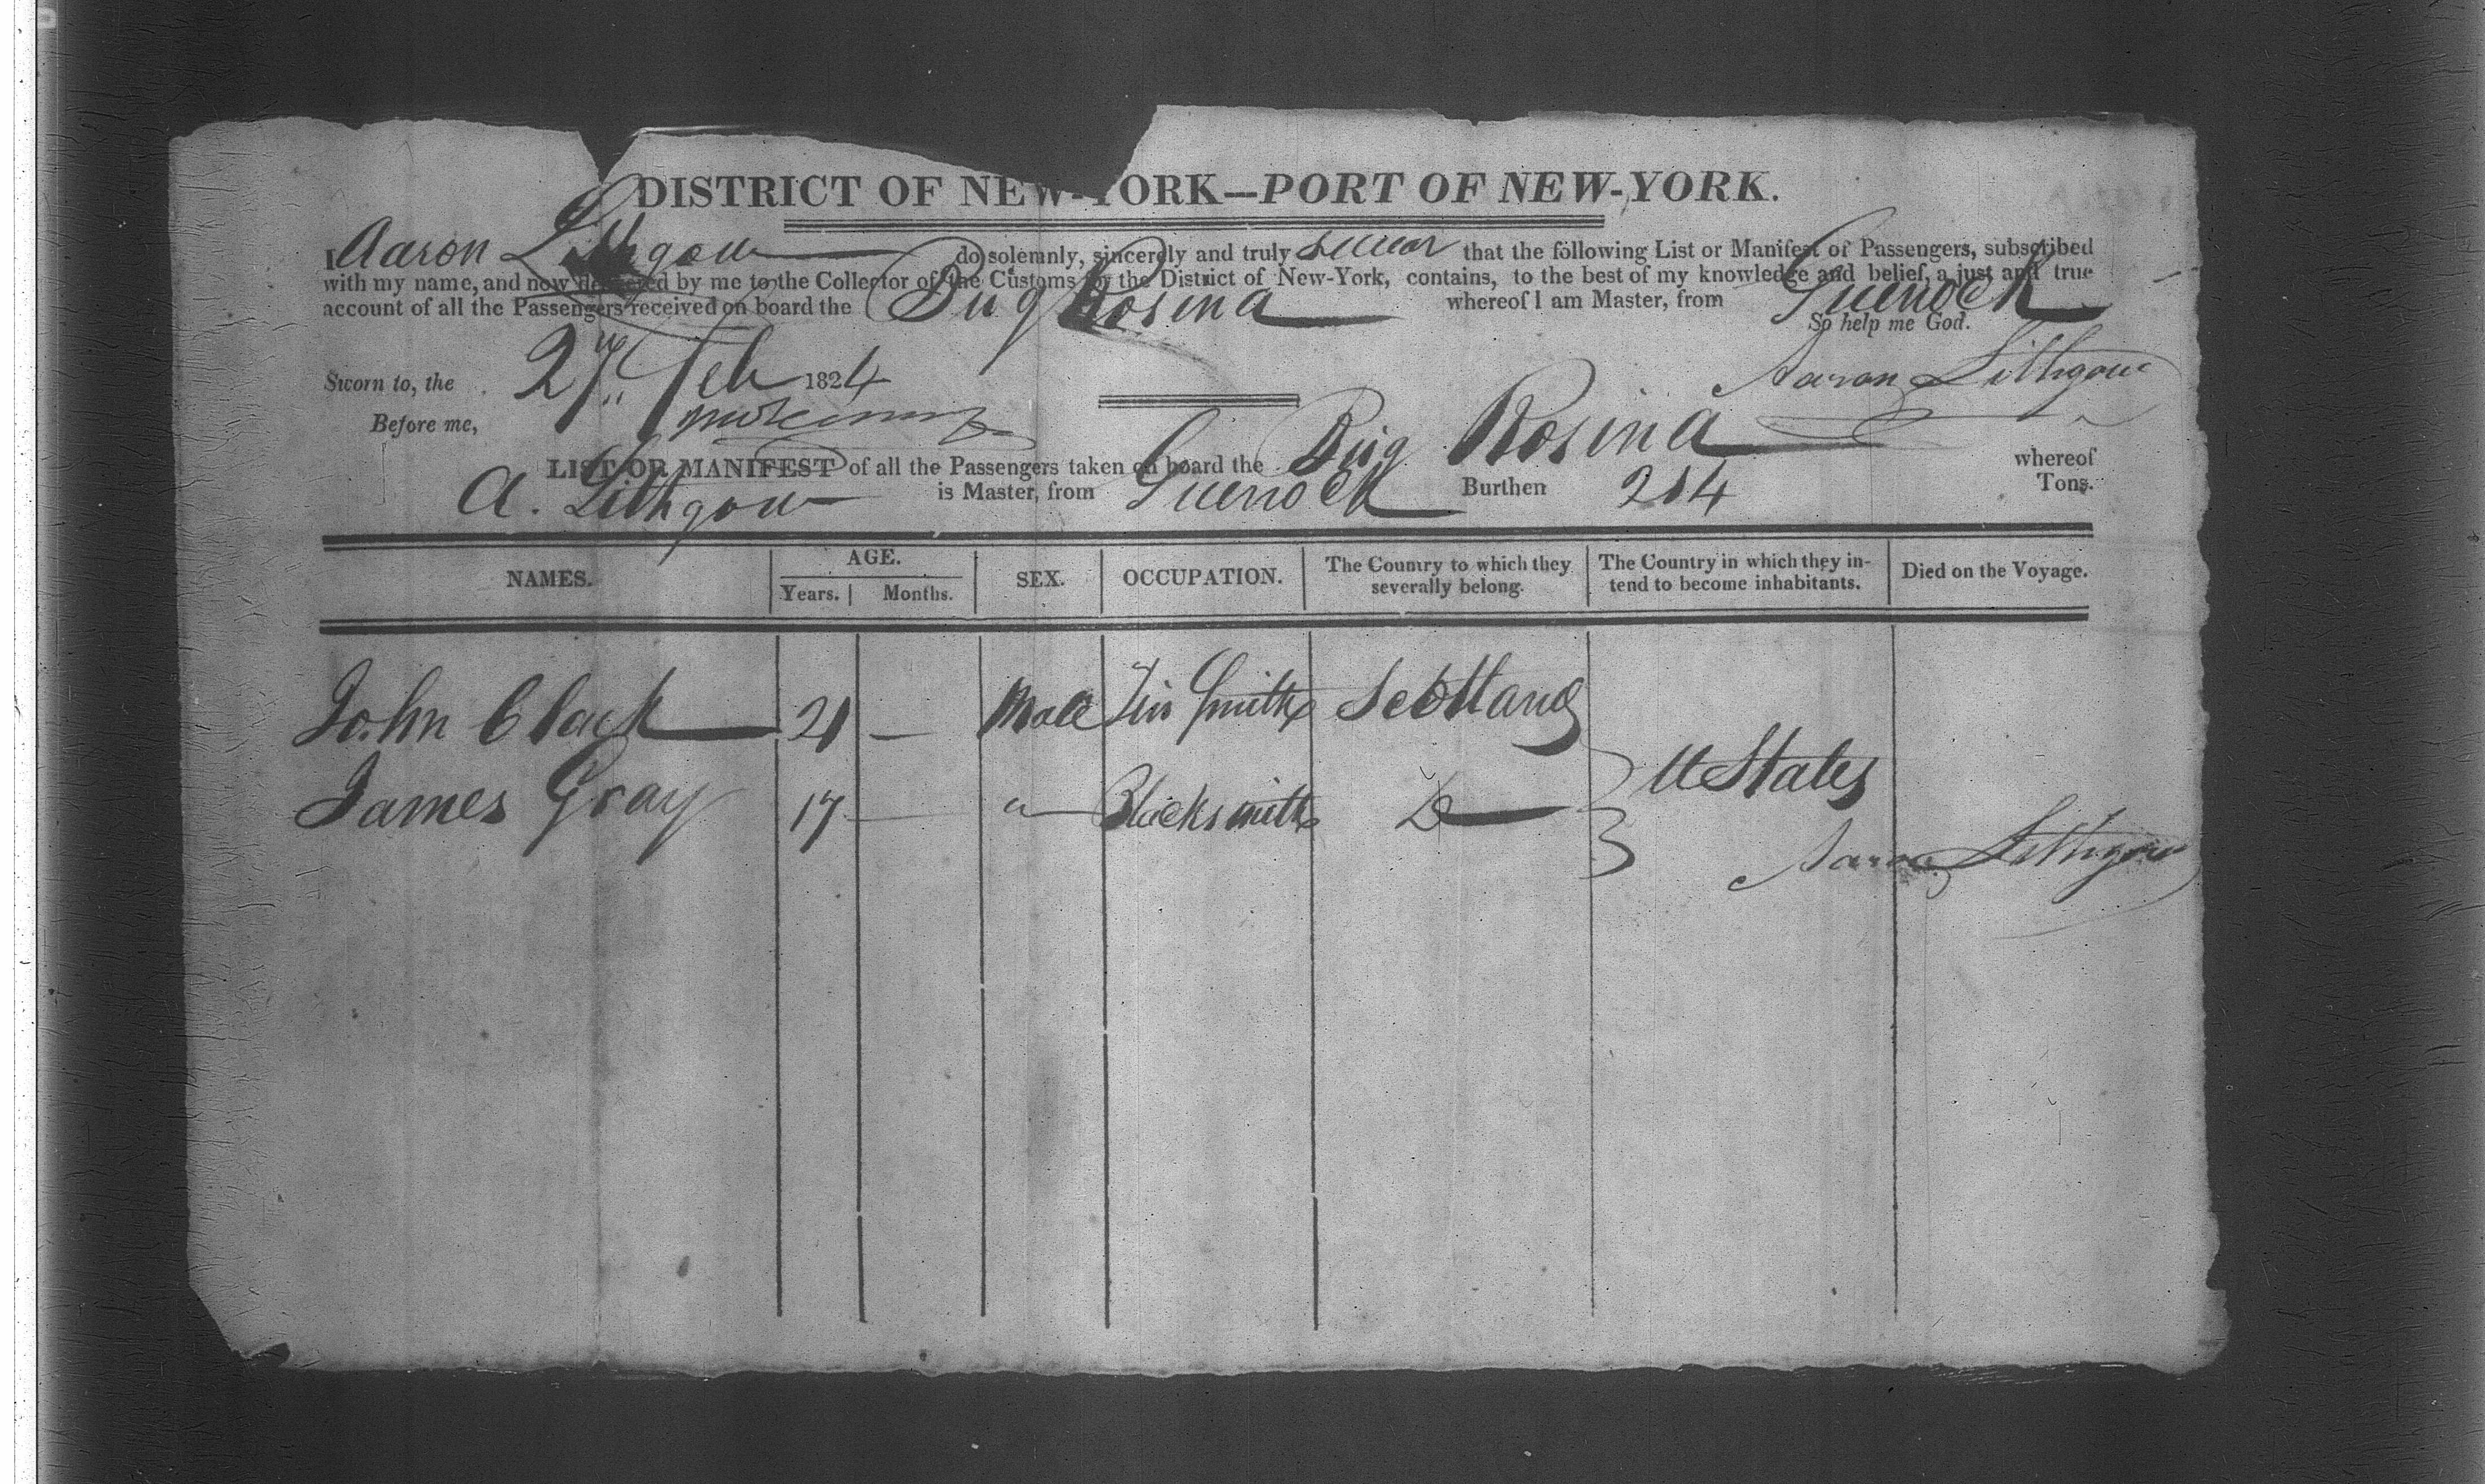 DISTRICT OF NEW-YORK—PORT OF NEW-YORK.
I Aaron Lithgow do solemnly, sincerely and truly swear that the following List or Manifest of Passengers, subscribed
with my name, and now delivered by me to the Collector of the Customs for the District of New-York, contains, to the best of my knowledge and belief, a just and true
account of all the Passengers received on board the Brig Rosina whereof I am Master, from Greenock
So help me God.
Sworn to, the 27th Feb 1824 Aaron Lithgow
Before me,
LIST OR MANIFEST of all the Passengers taken on board the Brig Rosina whereof
A. Lithgow is Master, from Greenock Burthen 214 Tons.
NAMES. AGE. Years. Months. SEX. OCCUPATION. The Country to which they severally belong. The Country in which they intend to become inhabitants. Died on the Voyage.
John Clark 21 — Male Tin Smith Scotland
James Gray 17 — " Blacksmith Do U States
Aaron Lithgow